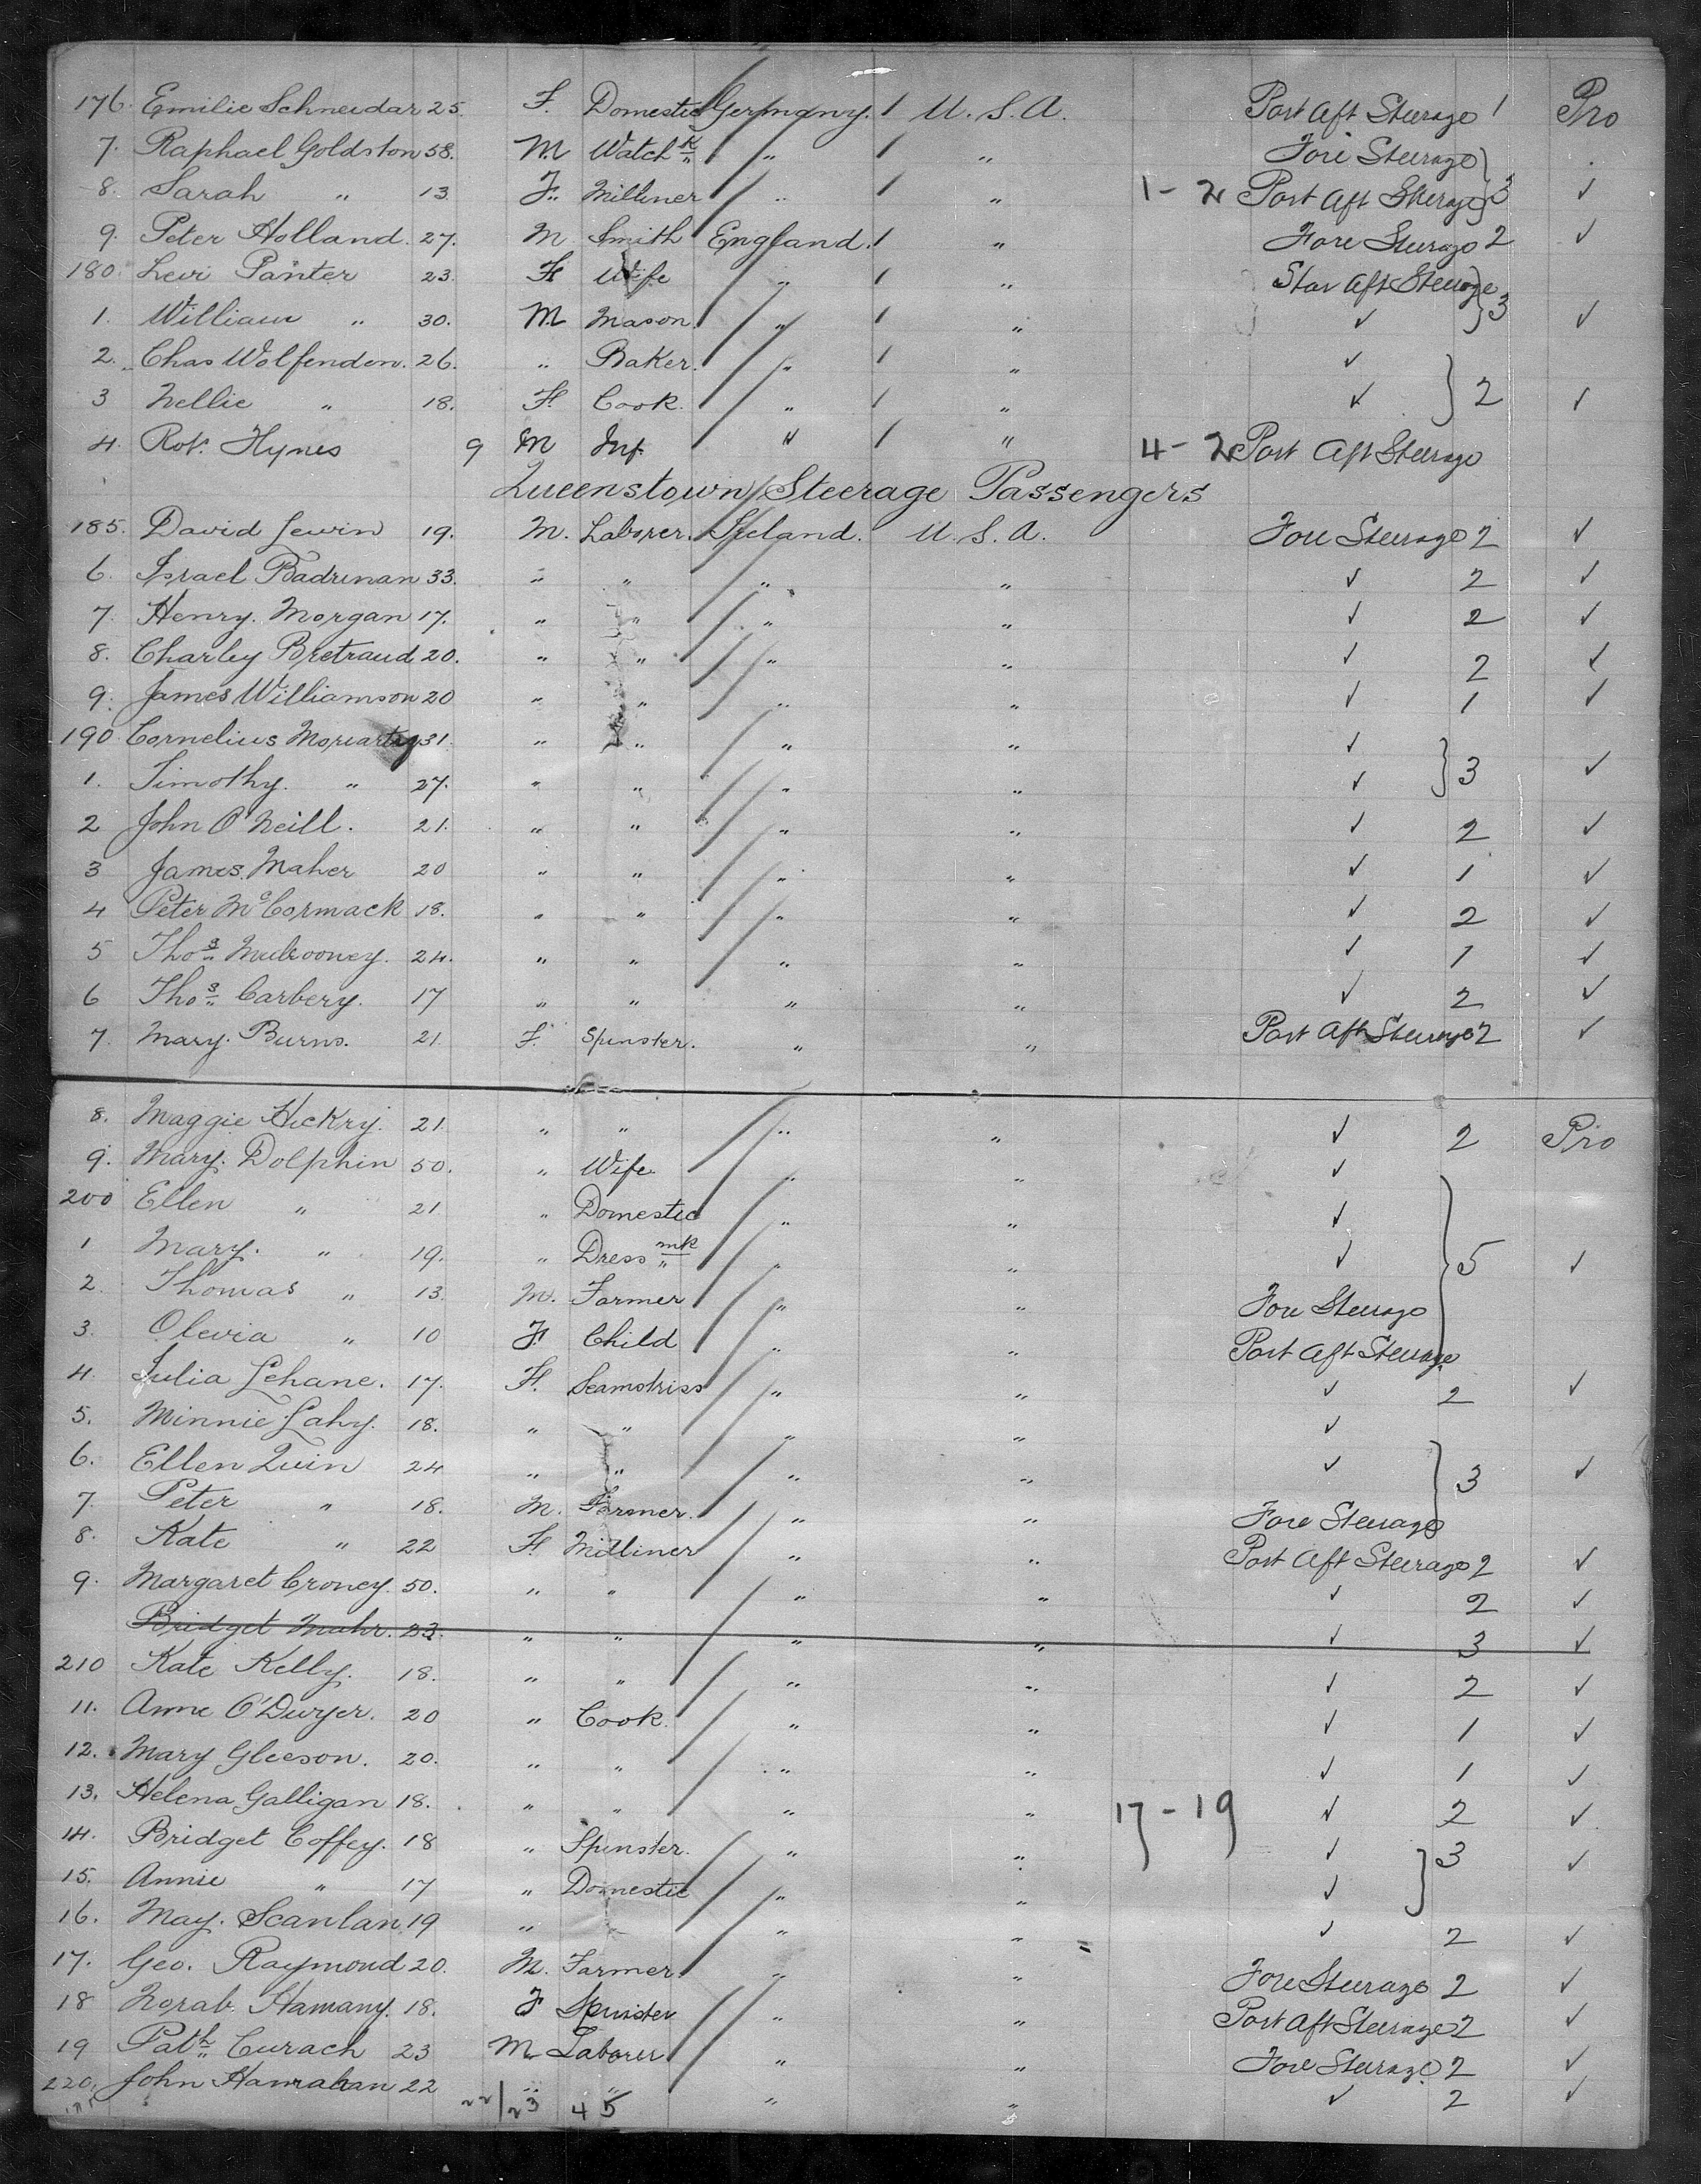 176. Emilie Schneidar 25. F. Domestic Germany. 1 U. S. A. Port Aft Steerage 1 Pro
7. Raphael Goldston 58. M Watch k " 1 " Fore Steerage
8. Sarah " 13 F. Milliner " 1 " 1-2 Port Aft Steerage } 3 ✓
9. Peter Holland. 27. M Smith England. 1 " Fore Steerage 2 ✓
180. Levi Panter 23. F Wife " 1 " Star Aft Steerage
1. William " 30. M Mason. " 1 " ✓ } 3 ✓
2. Chas Wolfendon. 26. " Baker. " 1 " ✓
3 Nellie " 18. F. Cook. " 1 " ✓ } 2 ✓
4. Rot. Hynes 9 M Inf. " 1 " 4-2 Port Aft Steerage
Queenstown Steerage Passengers
185. David Lewin 19. M. Laborer. Ireland. U. S. A. Fore Steerage 2 ✓
6. Israel Badrinan 33. " " " " ✓ 2 ✓
7. Henry. Morgan 17. " " " " ✓ 2 ✓
8. Charley Bretraud 20. " " " " ✓ 2 ✓
9. James Williamson 20 " " " " ✓ 1 ✓
190 Cornelius Moriartey 31. " " " " ✓
1. Timothy. " 27. " " " " ✓ } 3 ✓
2 John O'Neill. 21. " " " " ✓ 2 ✓
3 James. Maher 20 " " " " ✓ 1 ✓
4 Peter McCormack 18. " " " " ✓ 2 ✓
5 Thos Mulrooney. 24. " " " " ✓ 1 ✓
6 Thos Carbery. 17 " " " " ✓ 2 ✓
7 Mary. Burns. 21. F. Spinster. " " Port Aft Steerage 2 ✓
8. Maggie Hickry. 21. " " " " ✓ 2 Pro
9. Mary. Dolphin 50. " Wife " " ✓
200 Ellen " 21. " Domestic " " ✓
1 Mary. " 19. " Dress mk " " ✓ } 5 ✓
2. Thomas " 13. M. Farmer " " Fore Steerage
3. Olevia " 10 F Child " " Port Aft Steerage
4. Julia Lehane. 17. F. Seamstriss " " ✓ 2 ✓
5. Minnie Lahy. 18. " " " " ✓
6. Ellen Quin 24 " " " " ✓ } 3 ✓
7. Peter " 18. M. Farmer. " " Fore Steerage
8. Kate " 22 F. Milliner " " Port Aft Steerage 2 ✓
9. Margaret Croney. 50. " " " " ✓ 2 ✓
Bridget Mahr. 23. " " " " ✓ 3 ✓
210 Kate Kelly. 18. " " " " ✓ 2 ✓
11. Anne O'Dwyer. 20 " Cook. " " ✓ 1 ✓
12. Mary Gleeson. 20. " " " " ✓ 1 ✓
13. Helena Galligan 18. " " " " 17-19 ✓ 2 ✓
14. Bridget Coffey. 18 " Spinster. " " ✓ 3 ✓
15. Annie " 17 " Domestic " " ✓ }
16. May. Scanlan 19 " " " ✓ 2 ✓
17. Geo. Raymond 20. M. Farmer. " " Fore Steerage 2 ✓
18 Norah. Hamany. 18. F Spinster " " Port Aft Steerage 2 ✓
19 Path Curach 23 M Laborer " " Fore Steerage 2 ✓
220. John Hanrahan 22 " " " " ✓ 2 ✓
22/23 45